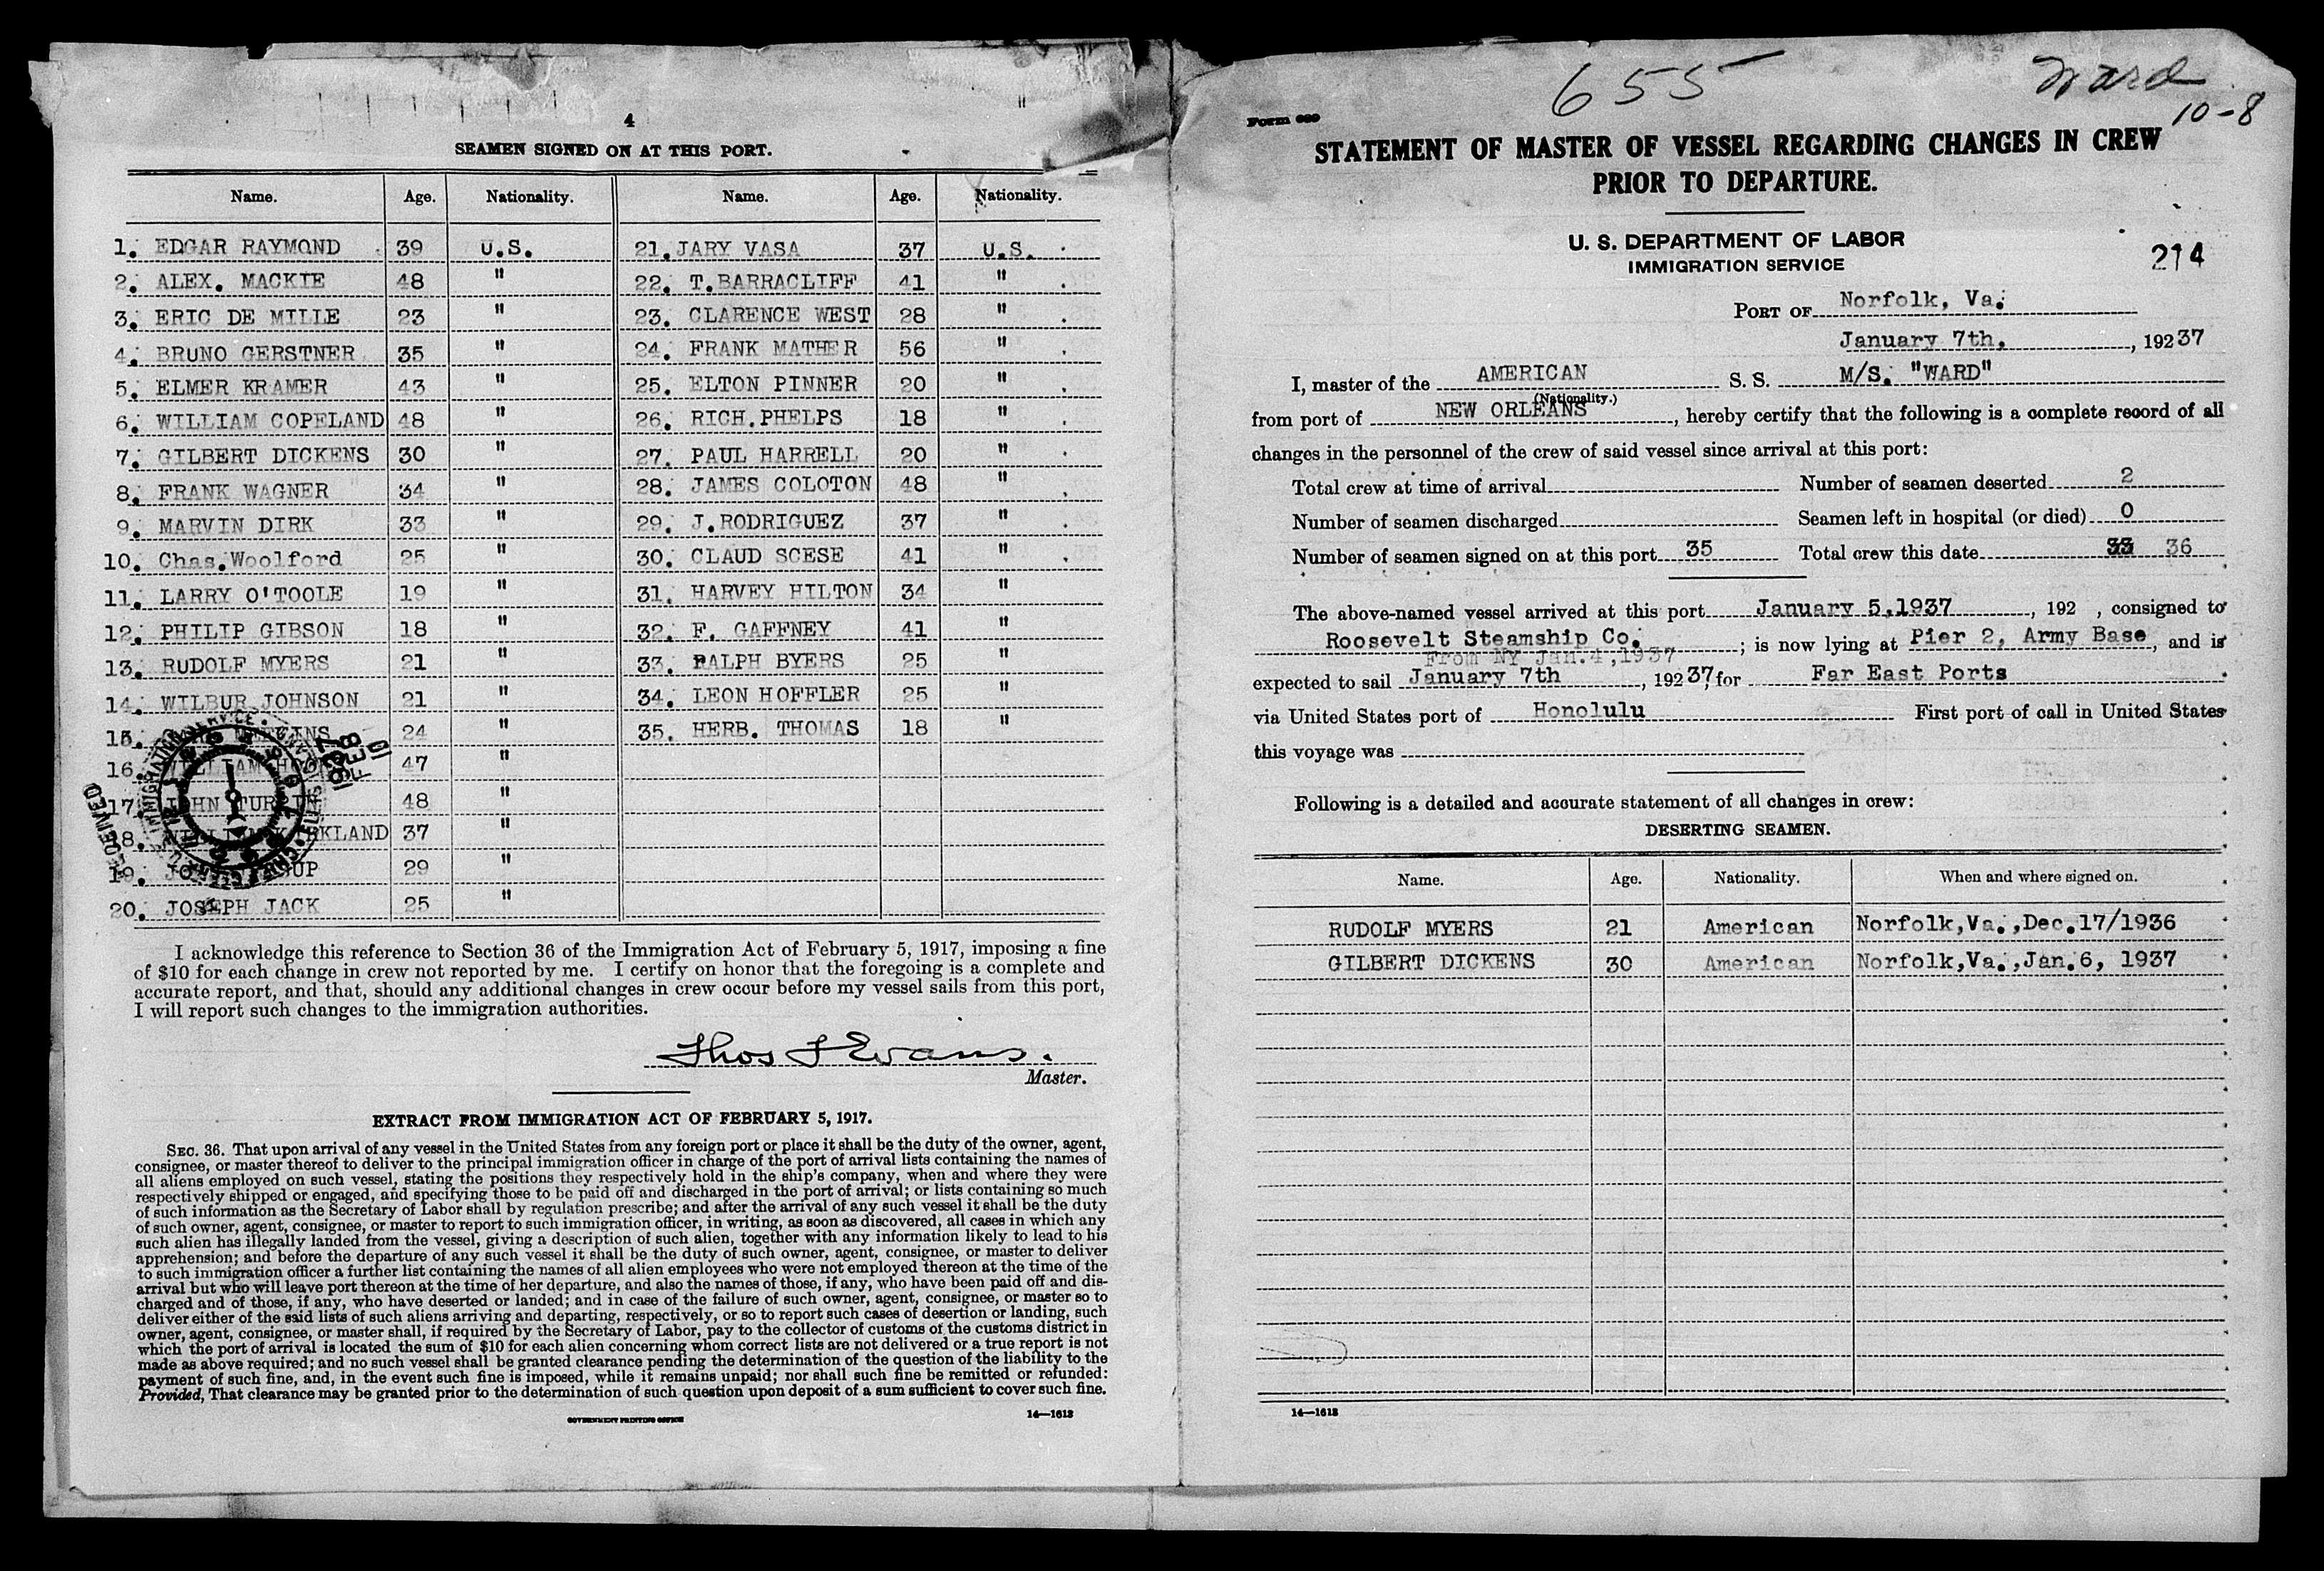 4
SEAMEN SIGNED ON AT THIS PORT.
Name. Age. Nationality. Name. Age. Nationality.
1. EDGAR RAYMOND 39 U.S. 21. JARY VASA 37 U.S.
2. ALEX. MACKIE 48 " 22. T.BARRACLIFF 41 "
3. ERIC DE MILLE 23 " 23. CLARENCE WEST 28 "
4. BRUNO GERSTNER 35 " 24. FRANK MATHER 56 "
5. ELMER KRAMER 43 " 25. ELTON PINNER 20 "
6. WILLIAM COPELAND 48 " 26. RICH.PHELPS 18 "
7. GILBERT DICKENS 30 " 27. PAUL HARRELL 20 "
8. FRANK WAGNER 34 " 28. JAMES COLOTON 48 "
9. MARVIN DIRK 33 " 29. J.RODRIGUEZ 37 "
10. Chas.Woolford 25 " 30. CLAUD SCESE 41 "
11. LARRY O'TOOLE 19 " 31. HARVEY HILTON 34 "
12. PHILIP GIBSON 18 " 32. F. GAFFNEY 41 "
13. RUDOLF MYERS 21 " 33. RALPH BYERS 25 "
14. WILBUR JOHNSON 21 " 34. LEON HOFFLER 25 "
15. 24 " 35. HERB. THOMAS 18 "
16. WILLIAM 47 "
17. JOHN TURPIN 48 "
18. 37 "
19. 29 "
20. JOSEPH JACK 25 "
RECEIVED
1937 FEB 10
I acknowledge this reference to Section 36 of the Immigration Act of February 5, 1917, imposing a fine
of $10 for each change in crew not reported by me. I certify on honor that the foregoing is a complete and
accurate report, and that, should any additional changes in crew occur before my vessel sails from this port,
I will report such changes to the immigration authorities.
Thos F Evans.
Master.
EXTRACT FROM IMMIGRATION ACT OF FEBRUARY 5, 1917.
SEC. 36. That upon arrival of any vessel in the United States from any foreign port or place it shall be the duty of the owner, agent,
consignee, or master thereof to deliver to the principal immigration officer in charge of the port of arrival lists containing the names of
all aliens employed on such vessel, stating the positions they respectively hold in the ship's company, when and where they were
respectively shipped or engaged, and specifying those to be paid off and discharged in the port of arrival; or lists containing so much
of such information as the Secretary of Labor shall by regulation prescribe; and after the arrival of any such vessel it shall be the duty
of such owner, agent, consignee, or master to report to such immigration officer, in writing, as soon as discovered, all cases in which any
such alien has illegally landed from the vessel, giving a description of such alien, together with any information likely to lead to his
apprehension; and before the departure of any such vessel it shall be the duty of such owner, agent, consignee, or master to deliver
to such immigration officer a further list containing the names of all alien employees who were not employed thereon at the time of the
arrival but who will leave port thereon at the time of her departure, and also the names of those, if any, who have been paid off and dis-
charged and of those, if any, who have deserted or landed; and in case of the failure of such owner, agent, consignee, or master so to
deliver either of the said lists of such aliens arriving and departing, respectively, or so to report such cases of desertion or landing, such
owner, agent, consignee, or master shall, if required by the Secretary of Labor, pay to the collector of customs of the customs district in
which the port of arrival is located the sum of $10 for each alien concerning whom correct lists are not delivered or a true report is not
made as above required; and no such vessel shall be granted clearance pending the determination of the question of the liability to the
payment of such fine, and, in the event such fine is imposed, while it remains unpaid; nor shall such fine be remitted or refunded:
Provided, That clearance may be granted prior to the determination of such question upon deposit of a sum sufficient to cover such fine.
GOVERNMENT PRINTING OFFICE 14—1613
655 Ward
10-8
Form 689
STATEMENT OF MASTER OF VESSEL REGARDING CHANGES IN CREW
PRIOR TO DEPARTURE.
U. S. DEPARTMENT OF LABOR
IMMIGRATION SERVICE
214
PORT OF Norfolk, Va.
January 7th, , 19237
I, master of the AMERICAN S. S. M/S. "WARD"
(Nationality.)
from port of NEW ORLEANS, hereby certify that the following is a complete record of all
changes in the personnel of the crew of said vessel since arrival at this port:
Total crew at time of arrival Number of seamen deserted 2
Number of seamen discharged Seamen left in hospital (or died) 0
Number of seamen signed on at this port 35 Total crew this date 33 36
The above-named vessel arrived at this port January 5,1937, 192 , consigned to
Roosevelt Steamship Co. ; is now lying at Pier 2, Army Base, and is
From NY Jan.4,1937
expected to sail January 7th, 19237, for Far East Ports
via United States port of Honolulu First port of call in United States
this voyage was
Following is a detailed and accurate statement of all changes in crew:
DESERTING SEAMEN.
Name. Age. Nationality. When and where signed on.
RUDOLF MYERS 21 American Norfolk,Va.,Dec.17/1936
GILBERT DICKENS 30 American Norfolk,Va.,Jan.6, 1937
14—1613